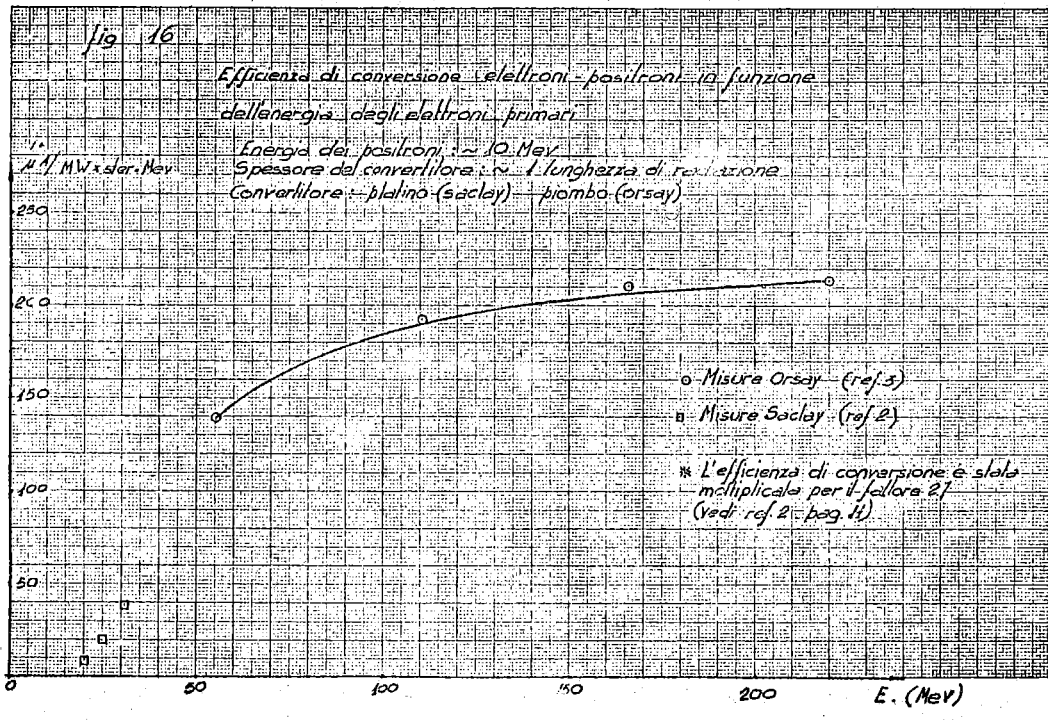 fig 16
Efficienza di conversione elettroni-positroni in funzione
dell'energia degli elettroni primari
Energia dei positroni : ~ 10 Mev
Spessore del convertitore : ~ 1 lunghezza di radiazione
Convertitore : platino (saclay) piombo (orsay)
i+
μA/MW×ster.Mev
250
200
150
100
50
0
50
100
150
200
E. (MeV)
Misure Orsay (ref.3)
Misure Saclay (ref.2)
* L'efficienza di conversione è stata
moltiplicata per il fattore
(vedi ref.2 - pag. 11)